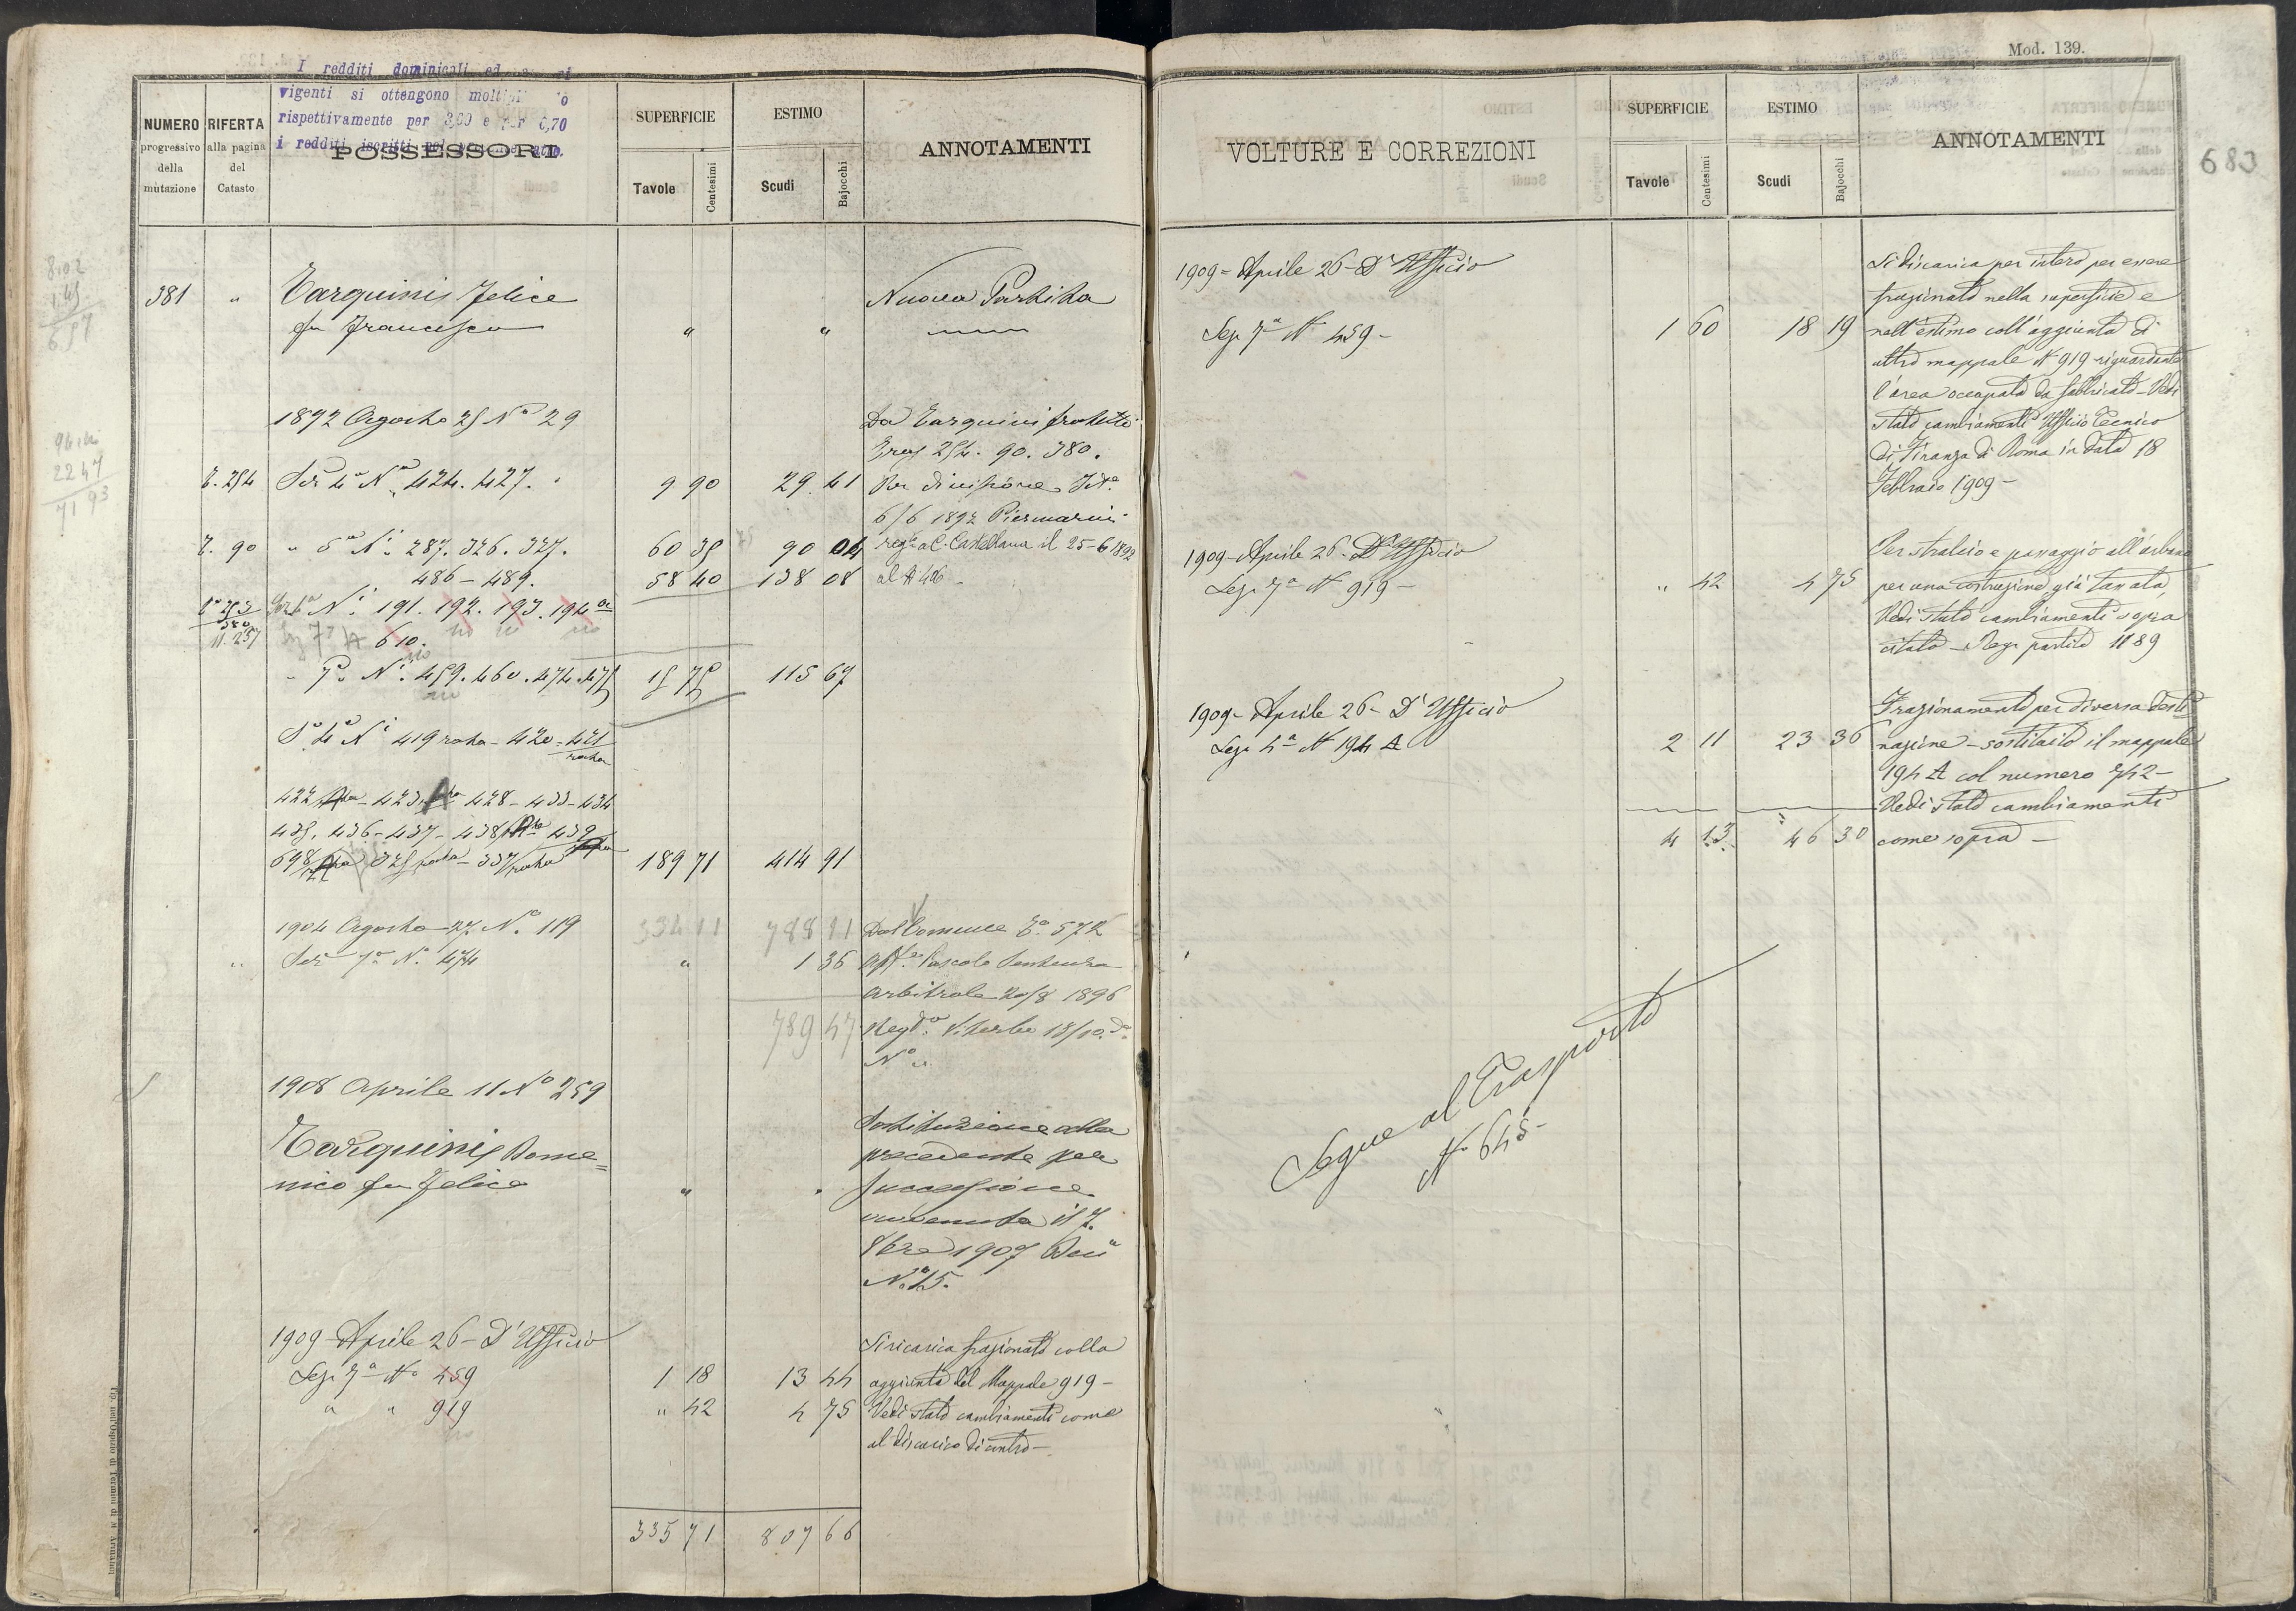 Mod. 139.
683
I redditi dominicali ed
vigenti si ottengono
rispettivamente per 3,00 e per 0,70
i redditi iscritti
NUMERO progressivo della mutazione
RIFERTA alla pagina del Catasto
POSSESSORI
SUPERFICIE
Tavole
Centesimi
ESTIMO
Scudi
Bajocchi
ANNOTAMENTI
381 " Tarquinj Felice Nuova Partita
fu Francesco " "
1892 Agosto 25 No 29 Da Tarquini fratelli
254. 90. 380.
T. 254 Sez 4a Ni 424. 427. 9 90 29 41 Per divisione
6/6 1892 Piermarini
T. 90 " 5a Ni 287. 326. 327. 60 35 90 04 regta a C. Castellana il 25-6 1892
486 - 489. 58 40 138 08 al N 406
Ni 191. 192. 193. 194
11. 257 Sez 7a N 610.
" 7a Ni 459. 460. 474. 475 15 75 115 67
Sa 4a Ni 419 rata - 420 - 421 rata
422 - 423 - 428 - 433 - 434
435. 436 - 437 - 438 439
698 325 rata - 337 rata 189 71 414 91
1904 Agosto 27 No. 119 334 11 788 11 Dal Comune To 572
" Sez 7a No. 474 " 1 36 Affo. Pascolo Sentenza
arbitrale 20/8 1896
789 47 Regta. Viterbo 18/10.
No "
1908 Aprile 11 No 259
Sostituzione alla
Tarquinj Dome= precedente per
nico fu Felice " " successione
avvenuta il 7
8bre 1907
No. 15.
1909 - Aprile 26 - D'Ufficio Si ricarica frazionato colla
Sez. 7a No 459 1 18 13 44 aggiunta del Mappale 919 -
" " 919 " 42 4 75 Vedi stato cambiamenti come
al discarico di contro -
335 71 807 66
Tip. nell'Ospizio di Termini di A. Armanni
8,02
1 45
6 57
94 40
22 47
71 93
VOLTURE E CORREZIONI
SUPERFICIE
Tavole
Centesimi
ESTIMO
Scudi
Bajocchi
ANNOTAMENTI
1909 - Aprile 26 - D'Ufficio Si discarica per intero per essere
frazionato nella superficie e
Sez. 7a No 459 - 1 60 18 19 nell'estimo coll'aggiunta di
altro mappale No 919 riguardante
l'area occupata da fabbricato - Vedi
Stato cambiamenti Ufficio Tecnico
di Finanza di Roma in data 18
Febbraio 1909 -
1909 - Aprile 26 - D'Ufficio Per stralcio e passaggio all'urbano
Sez. 7a No 919 - " 42 4 75 per una costruzione già tassata,
Vedi stato cambiamenti sopra
citato - Rego partita 1189
1909 - Aprile 26 - D'Ufficio Frazionamento per diversa desti=
Sez. 4a No 194 A 2 11 23 36 nazione - sostituito il mappale
194 A col numero 742 -
Vedi stato cambiamenti
4 13 46 30 come sopra -
Segue al Trasporto
No 645 -